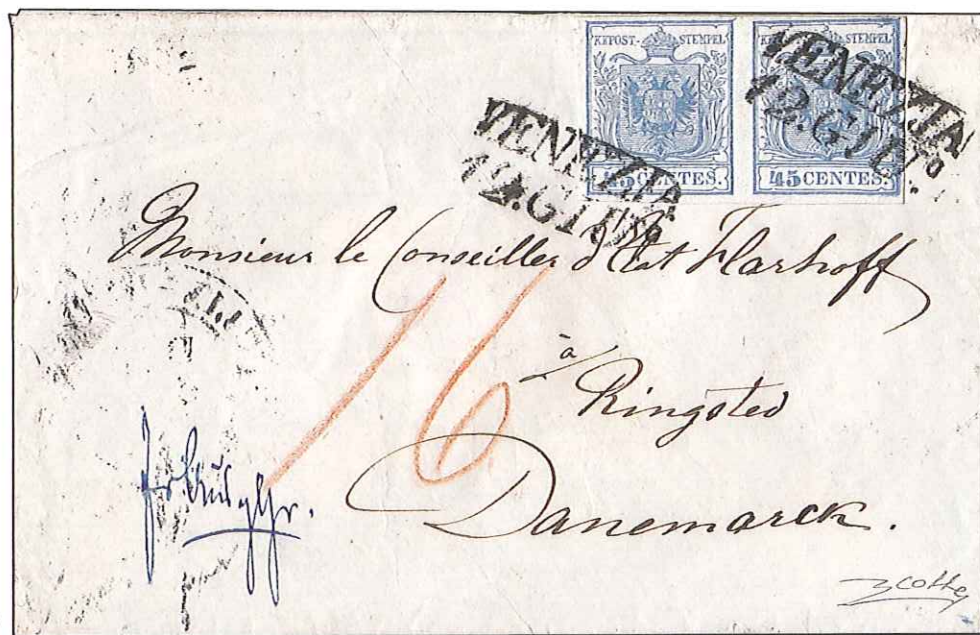 KKPOST-STEMPEL
45 CENTES.
KKPOST-STEMPEL
45 CENTES.
VENEZIA
12. GIU.
VENEZIA
12. GIU.
Monsieur le Conseiller d'Etat Harhoff
16
à
Ringsted
Danemarck.